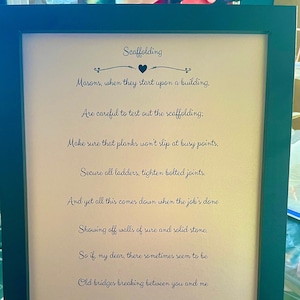 Scaffolding
Masons, when they start upon a building,
Are careful to test out the scaffolding;
Make sure that planks won't slip at busy points,
Secure all ladders, tighten bolted joints.
And yet all this comes down when the job's done
Showing off walls of sure and solid stone.
So if, my dear, there sometimes seem to be
Old bridges breaking between you and me